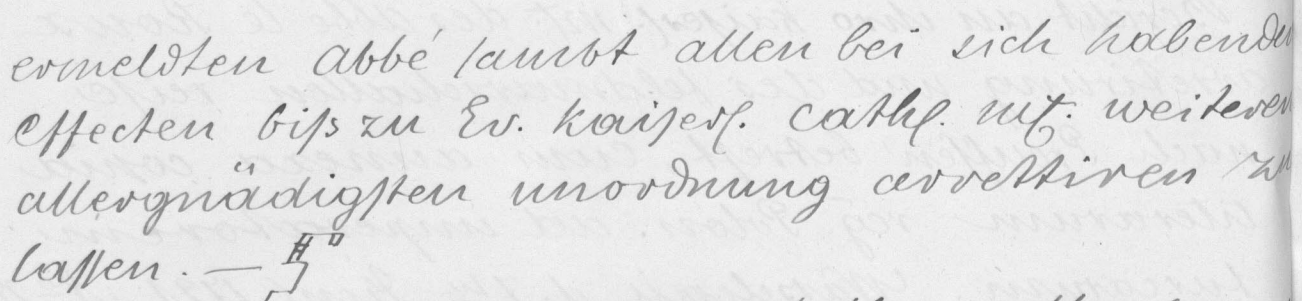 ermeldten abbé sambt allen bei sich habenden
effecten biß zu Ew. kaiserl. cathl. mt. weiteren
allergnädigsten unordnung arrettiren zu
lassen. —